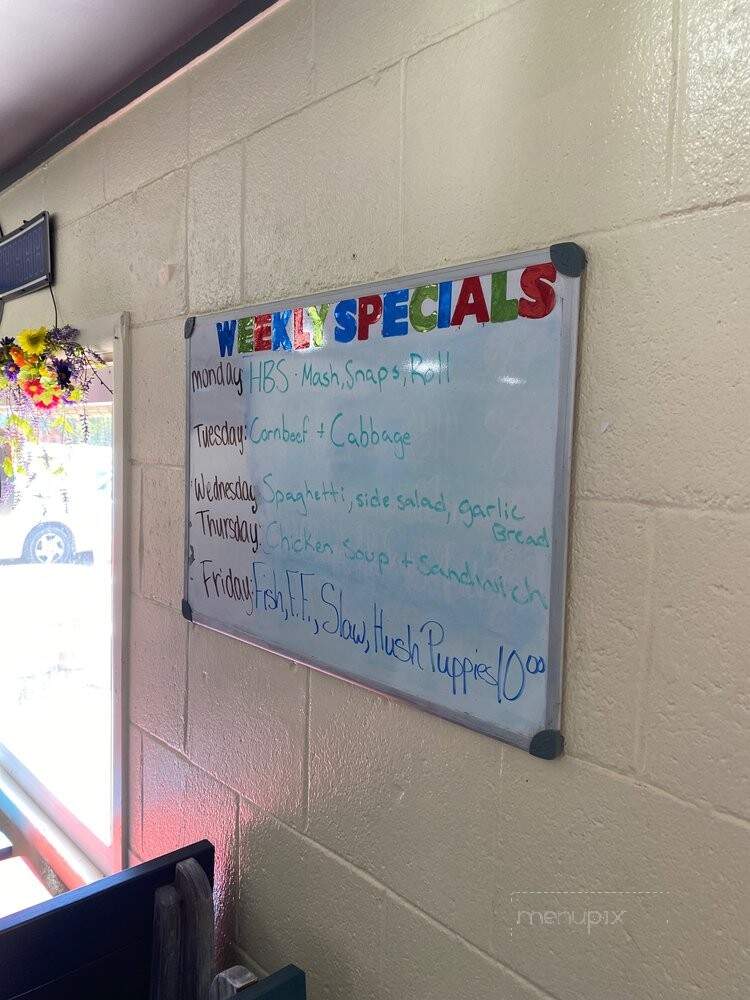 WEEKLY SPECIALS
monday: HBS. Mash, Snaps, Roll
Tuesday: Cornbeef + Cabbage
Wednesday: Spaghetti, side salad, garlic
Bread
Thursday: Chicken Soup + Sandwich
Friday: Fish, F.F., Slaw, Hush Puppies 10.00
menupix